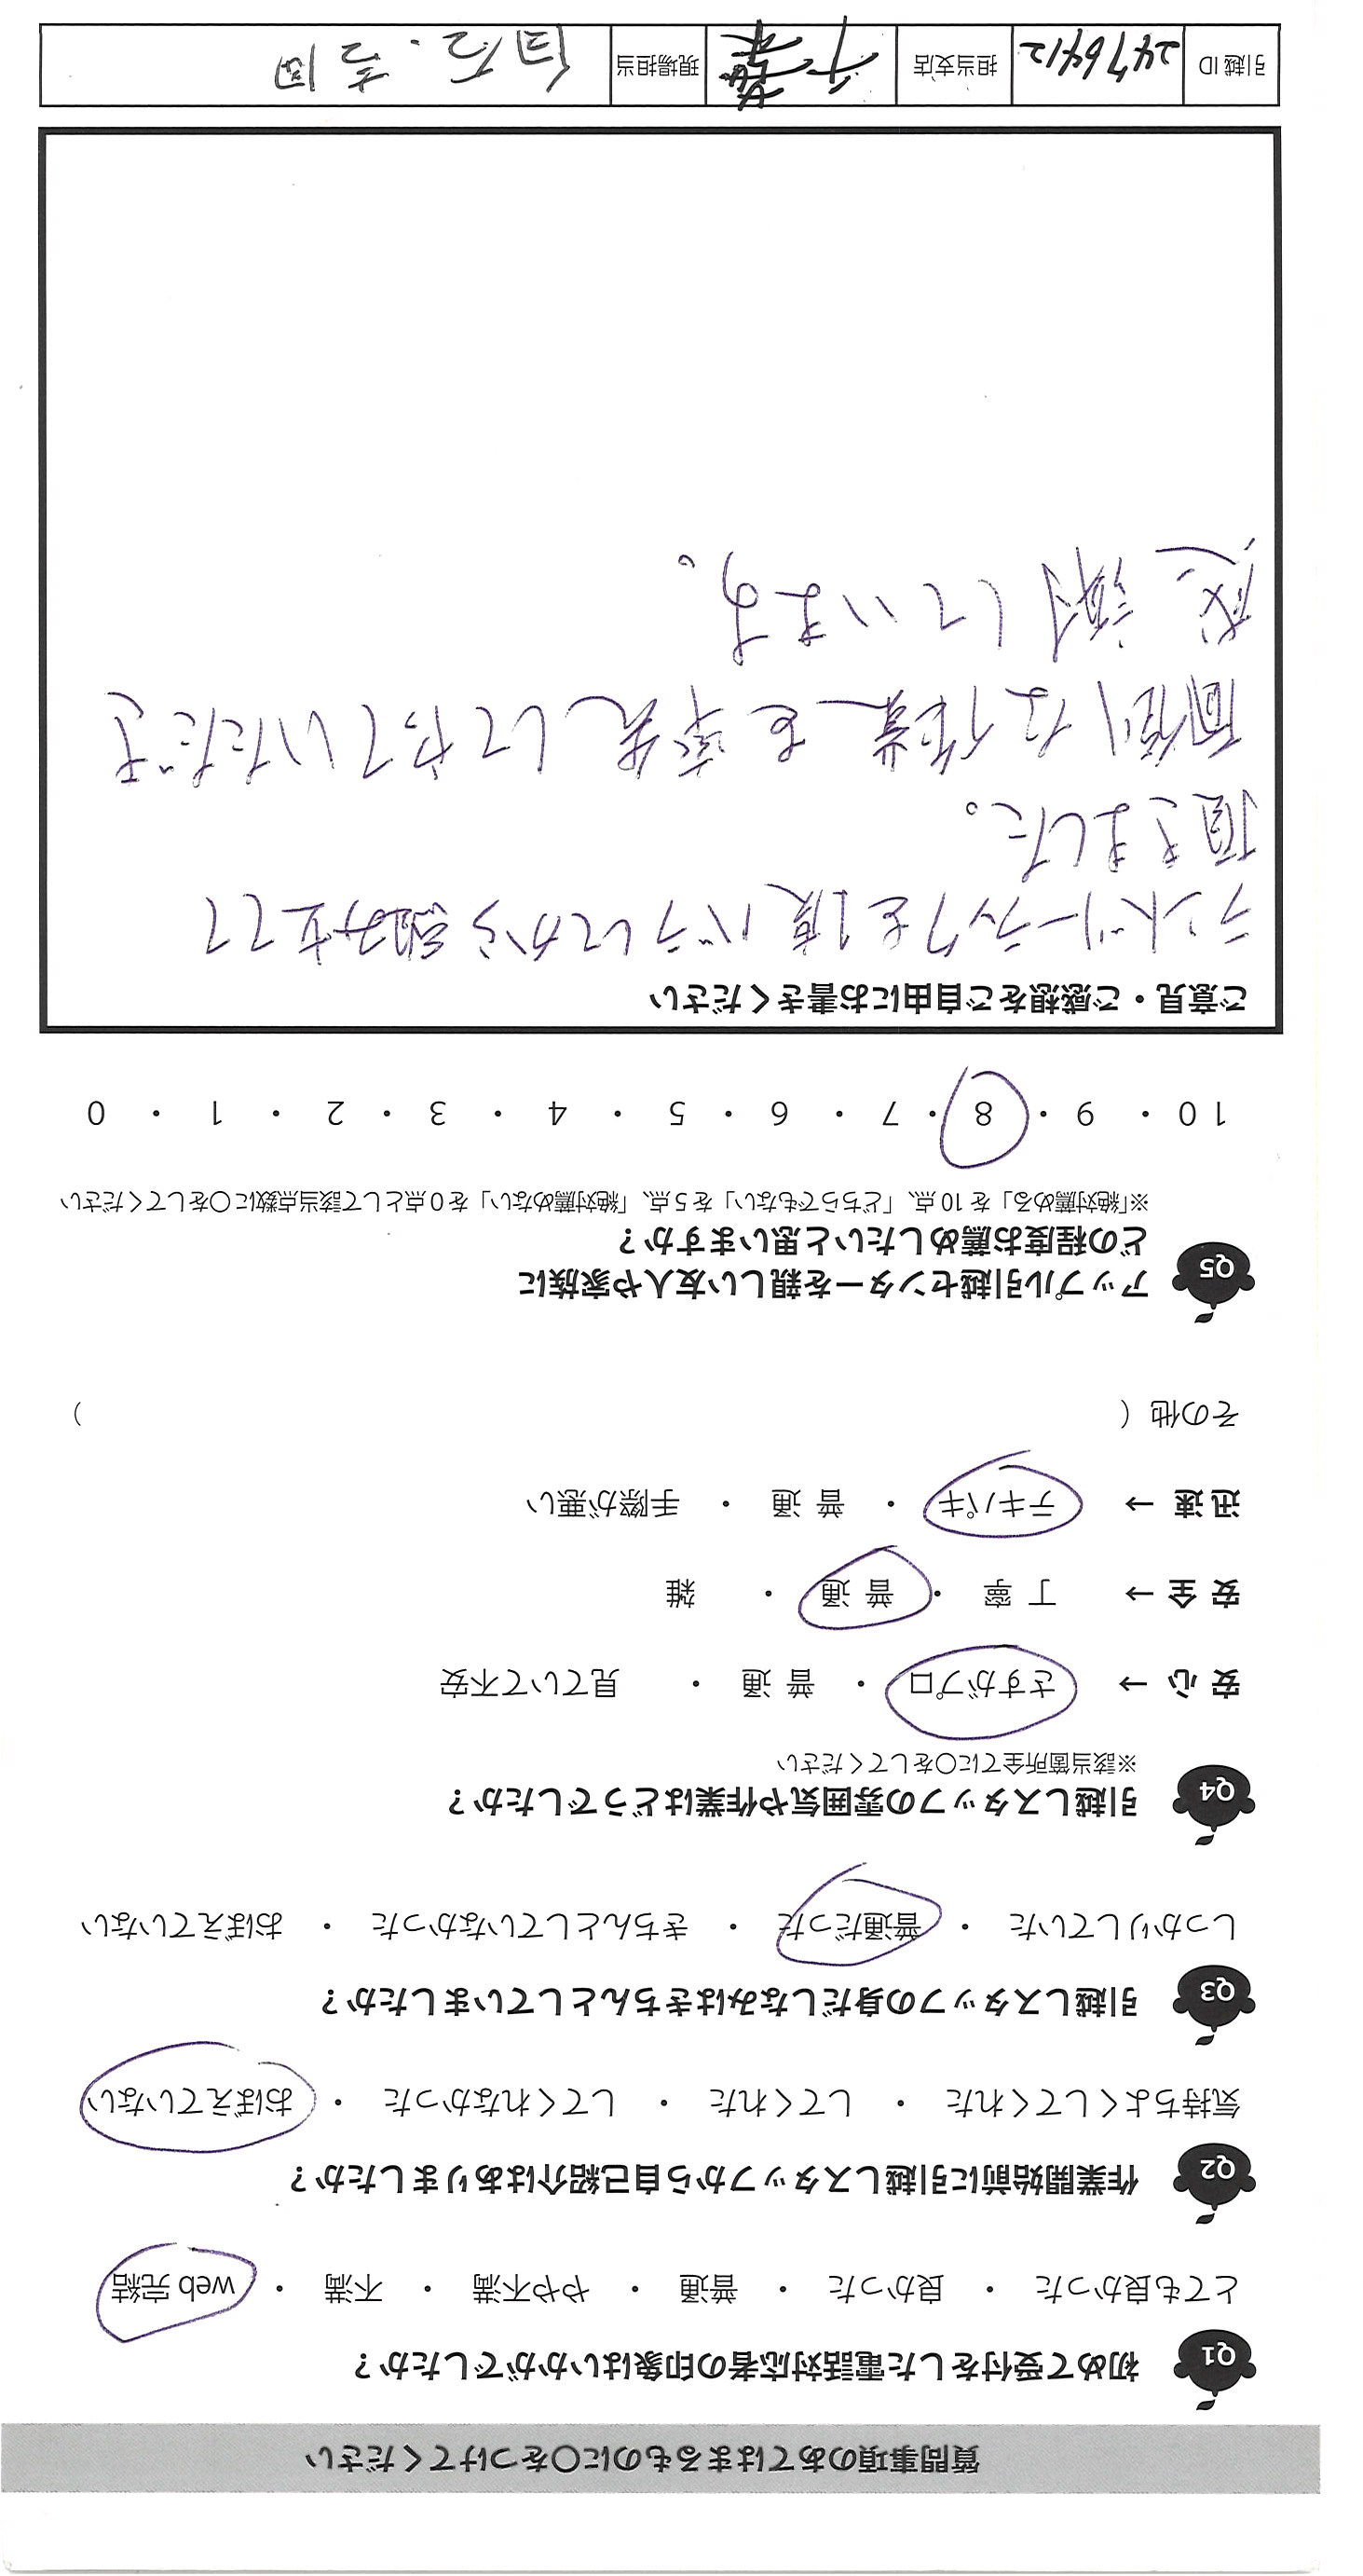 質問事項のあてはまるものに〇をつけてください
Q1 初めて受付をした電話対応者の印象はいかがでしたか?
とても良かった ・ 良かった ・ 普通 ・ やや不満 ・ 不満 ・ web 完結
Q2 作業開始前に引越しスタッフから自己紹介はありましたか?
気持ちよくしてくれた ・ してくれた ・ してくれなかった ・ おぼえていない
Q3 引越しスタッフの身だしなみはきちんとしていましたか?
しっかりしていた ・ 普通だった ・ きちんとしていなかった ・ おぼえていない
Q4 引越しスタッフの雰囲気や作業はどうでしたか?
※該当箇所全てに〇をしてください
安 心 → さすがプロ ・ 普 通 ・ 見ていて不安
安 全 → 丁 寧 ・ 普 通 ・ 雑
迅 速 → テキパキ ・ 普 通 ・ 手際が悪い
その他 ( )
Q5 アップル引越センターを親しい友人や家族に
どの程度お薦めしたいと思いますか?
※「絶対薦める」を 10 点、「どちらでもない」を 5 点、「絶対薦めない」を 0 点として該当点数に〇をしてください
10 ・ 9 ・ 8 ・ 7 ・ 6 ・ 5 ・ 4 ・ 3 ・ 2 ・ 1 ・ 0
ご意見・ご感想をご自由にお書きください
ランドリーラックを1度バラしてから組み立てて
頂きました。
面倒な作業を率先してやっていただき
感謝しています。
引越 ID 2476412 担当支店 千葉 現場担当 白石・吉岡